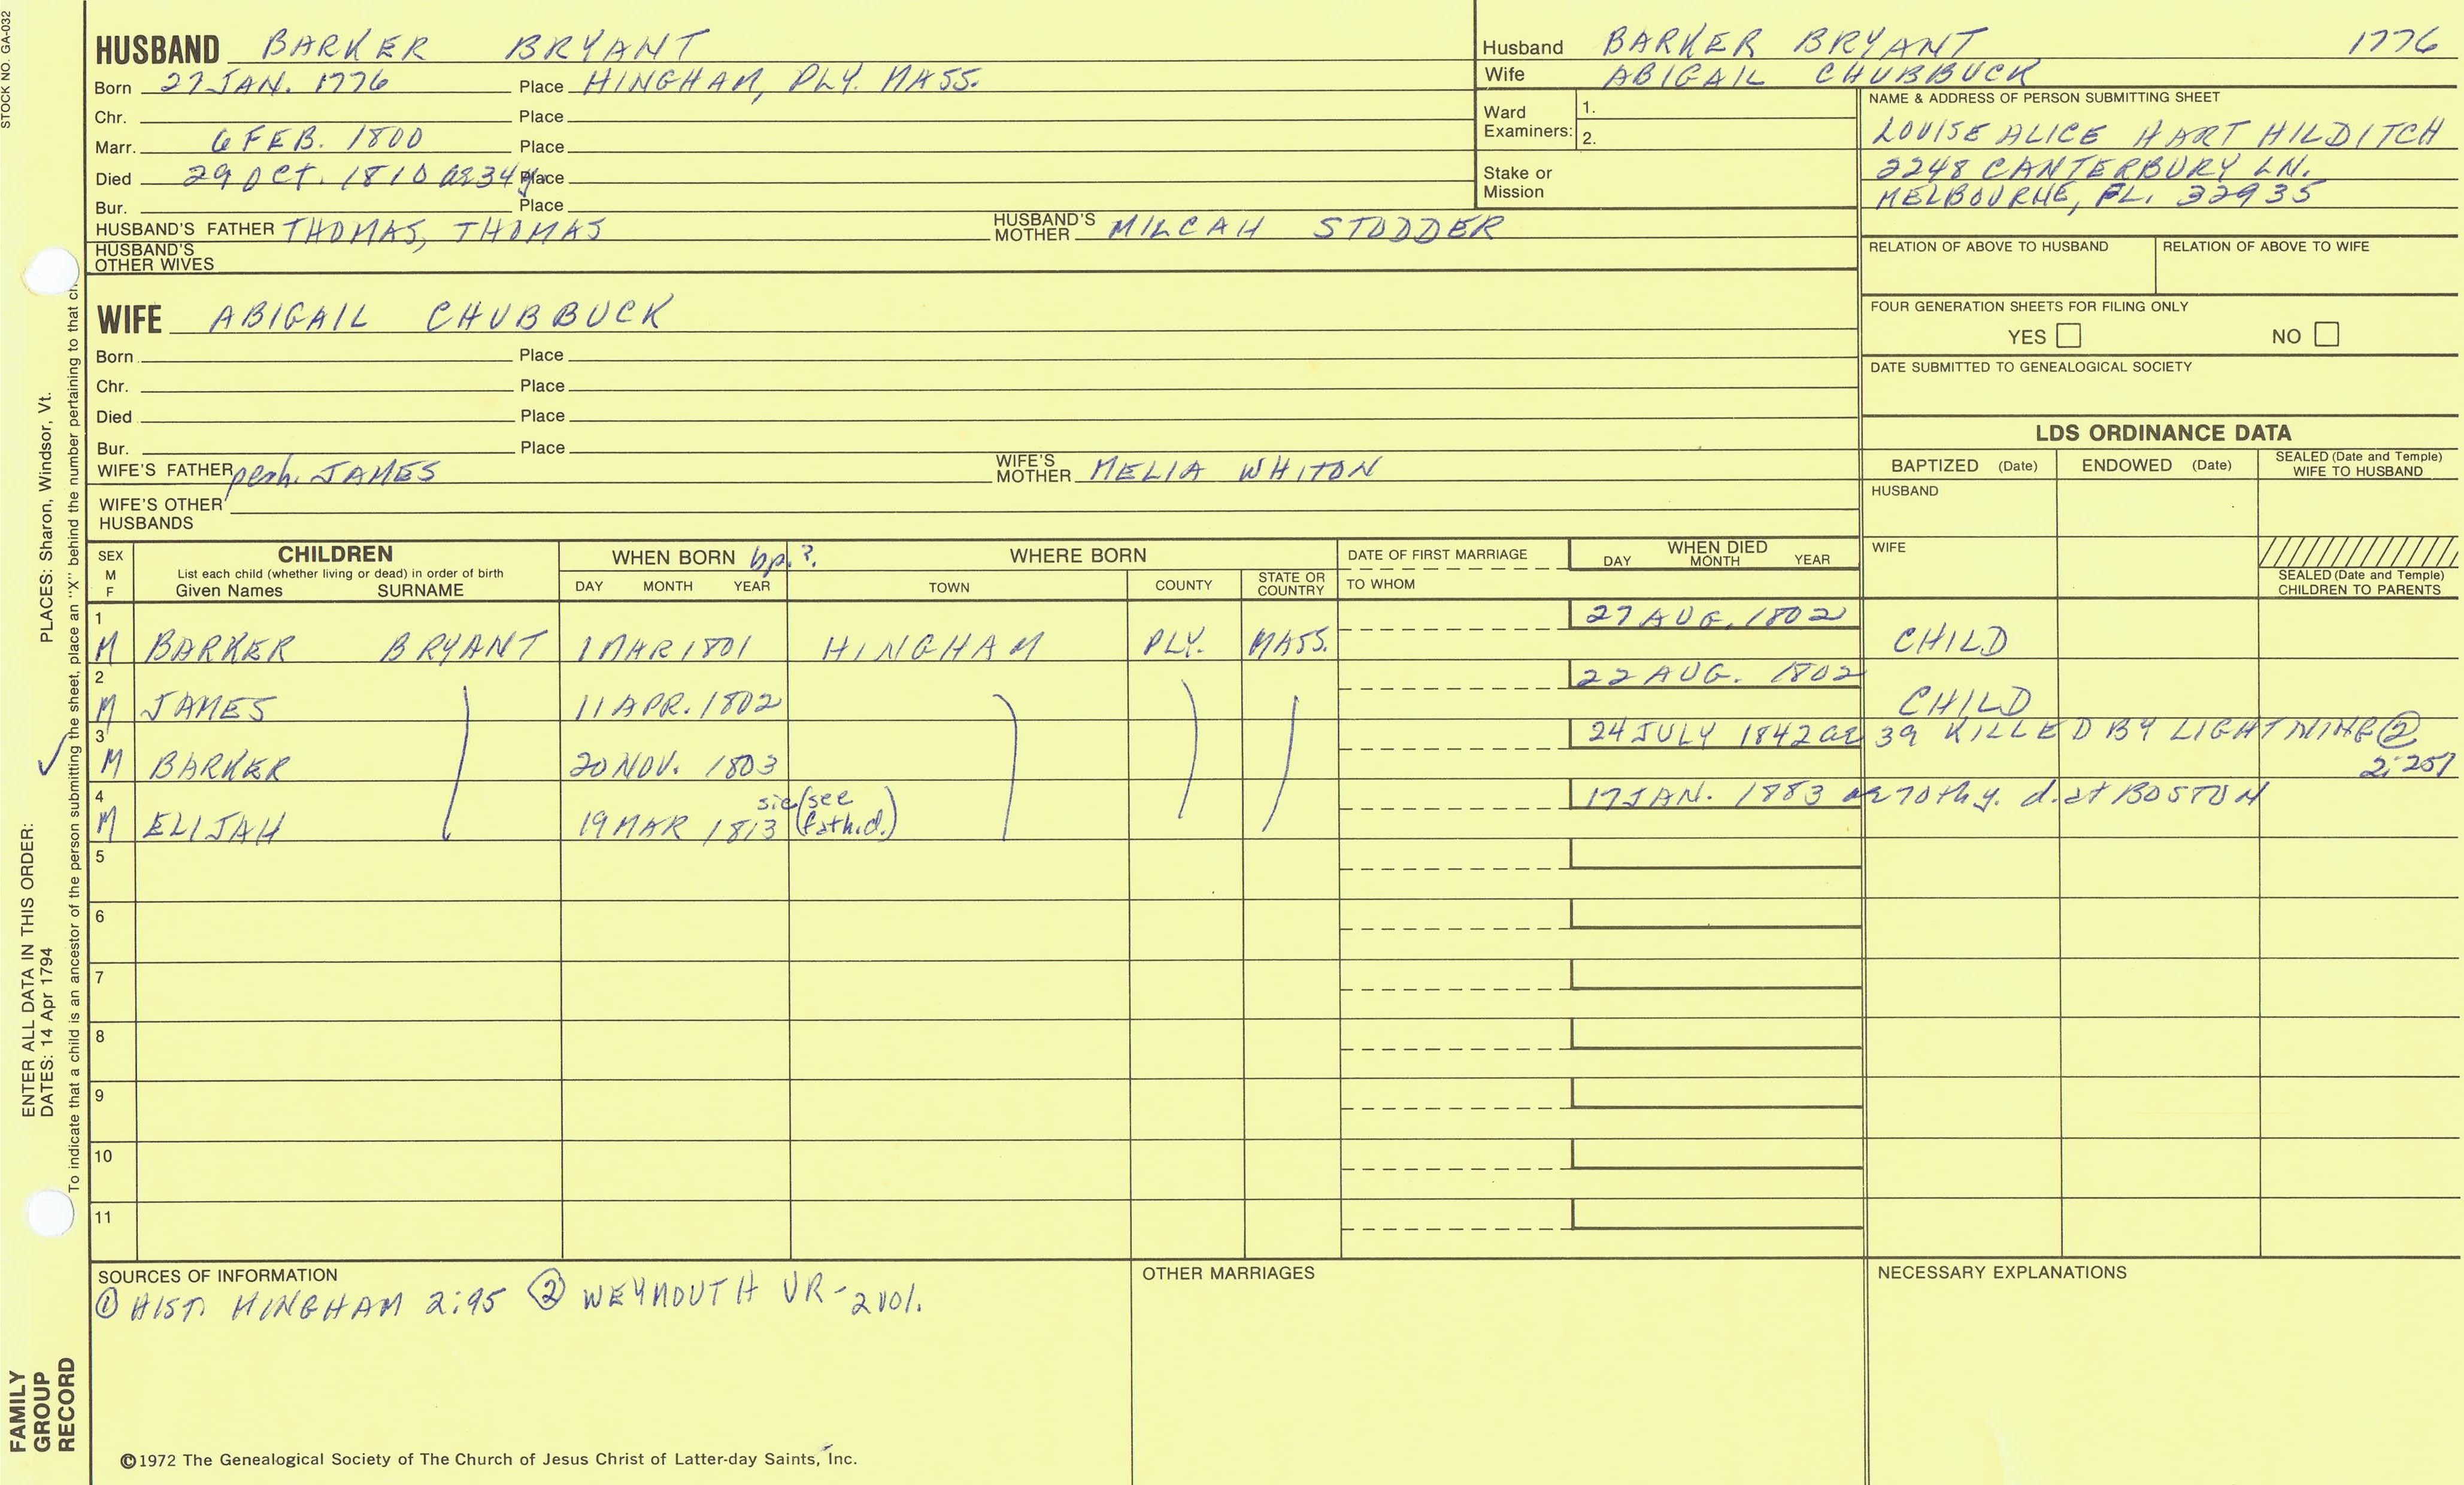 STOCK NO. GA-032
HUSBAND BARKER BRYANT
Born 27 JAN. 1776 Place HINGHAM, PLY. MASS.
Chr. Place
Marr. 6 FEB. 1800 Place
Died 29 OCT. 1810 ae 34y Place
Bur. Place
HUSBAND'S FATHER THOMAS, THOMAS HUSBAND'S MOTHER MILCAH STODDER
HUSBAND'S OTHER WIVES
Husband BARKER BRYANT 1776
Wife ABIGAIL CHUBBUCK
Ward Examiners: 1.
2.
Stake or Mission
NAME & ADDRESS OF PERSON SUBMITTING SHEET
LOUISE ALICE HART HILDITCH
2248 CANTERBURY LN.
MELBOURNE, FL. 32935
RELATION OF ABOVE TO HUSBAND RELATION OF ABOVE TO WIFE
FOUR GENERATION SHEETS FOR FILING ONLY
YES NO
DATE SUBMITTED TO GENEALOGICAL SOCIETY
WIFE ABIGAIL CHUBBUCK
Born Place
Chr. Place
Died Place
Bur. Place
WIFE'S FATHER perh. JAMES WIFE'S MOTHER MELIA WHITON
WIFE'S OTHER HUSBANDS
LDS ORDINANCE DATA
BAPTIZED (Date) ENDOWED (Date) SEALED (Date and Temple) WIFE TO HUSBAND
HUSBAND
WIFE
SEALED (Date and Temple) CHILDREN TO PARENTS
SEX M F
CHILDREN
List each child (whether living or dead) in order of birth
Given Names SURNAME
WHEN BORN bp.?
DAY MONTH YEAR
WHERE BORN
TOWN COUNTY STATE OR COUNTRY
DATE OF FIRST MARRIAGE
TO WHOM
WHEN DIED
DAY MONTH YEAR
1 27 AUG. 1802
M BARKER BRYANT 1 MAR 1801 HINGHAM PLY. MASS. CHILD
2 22 AUG. 1802
M JAMES 11 APR. 1802 CHILD
3 24 JULY 1842 ae 39 KILLED BY LIGHTNING ②
M BARKER 20 NOV. 1803 2:251
4 17 JAN. 1883 ae 70th y. d. at BOSTON
M ELIJAH 19 MAR 1813 sic (see fath. d.)
5
6
7
8
9
10
11
SOURCES OF INFORMATION
① HIST. HINGHAM 2:95 ② WEYMOUTH VR- 2 vol.
OTHER MARRIAGES
NECESSARY EXPLANATIONS
©1972 The Genealogical Society of The Church of Jesus Christ of Latter-day Saints, Inc.
ENTER ALL DATA IN THIS ORDER:
DATES: 14 Apr 1794 PLACES: Sharon, Windsor, Vt.
To indicate that a child is an ancestor of the person submitting the sheet, place an "X" behind the number pertaining to that
FAMILY
GROUP
RECORD